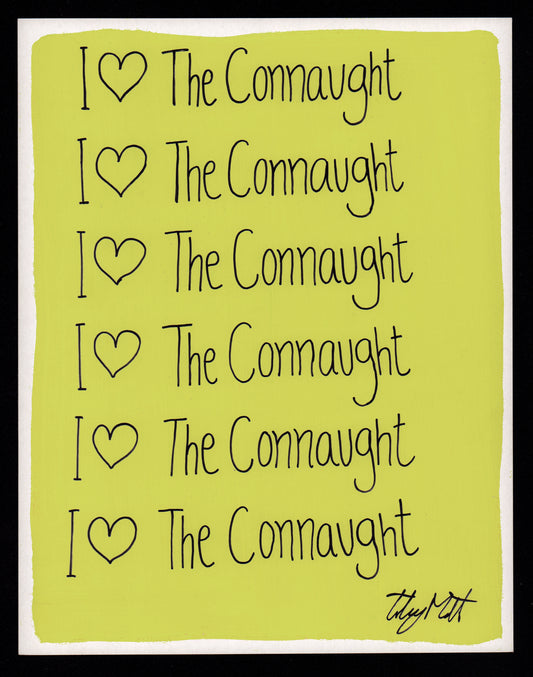 I ♡ The Connaught
I ♡ The Connaught
I ♡ The Connaught
I ♡ The Connaught
I ♡ The Connaught
I ♡ The Connaught